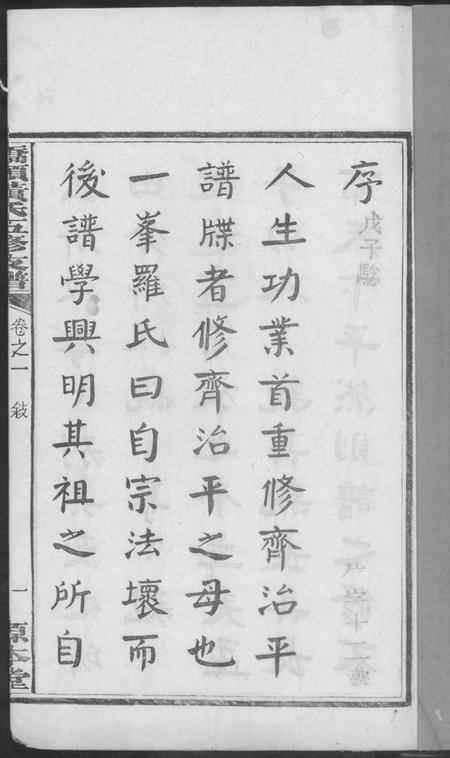 序
戊子驗
人生功業首重修齊治平
譜牒者修齊治平之母也
一峯羅氏曰自宗法壞而
後譜學興明其祖之所自
橋頭黃氏五修支譜
卷之一
敍
一
源本堂